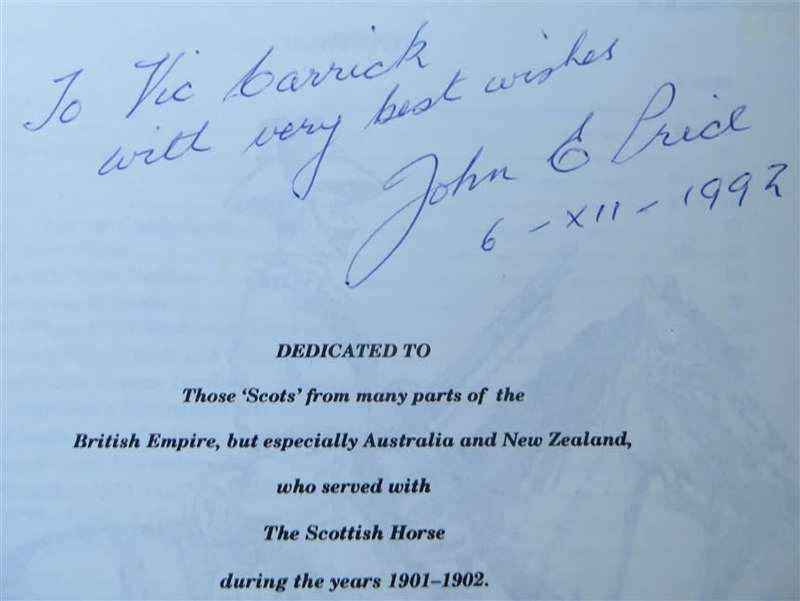 To Vic Carrick
with very best wishes
John E Price
6 - XII - 1992
DEDICATED TO
Those ‘Scots’ from many parts of the
British Empire, but especially Australia and New Zealand,
who served with
The Scottish Horse
during the years 1901–1902.